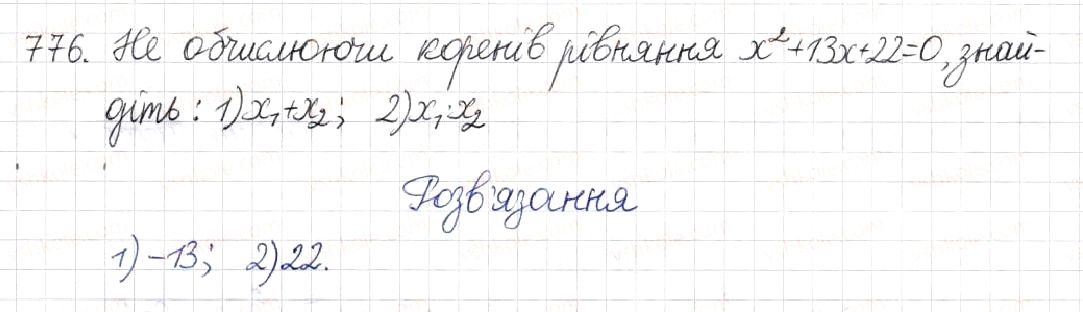 776. Не обчислюючи коренів рівняння x²+13x+22=0, знай-
діть: 1) x₁+x₂; 2) x₁·x₂
Розв'язання
1) -13; 2) 22.